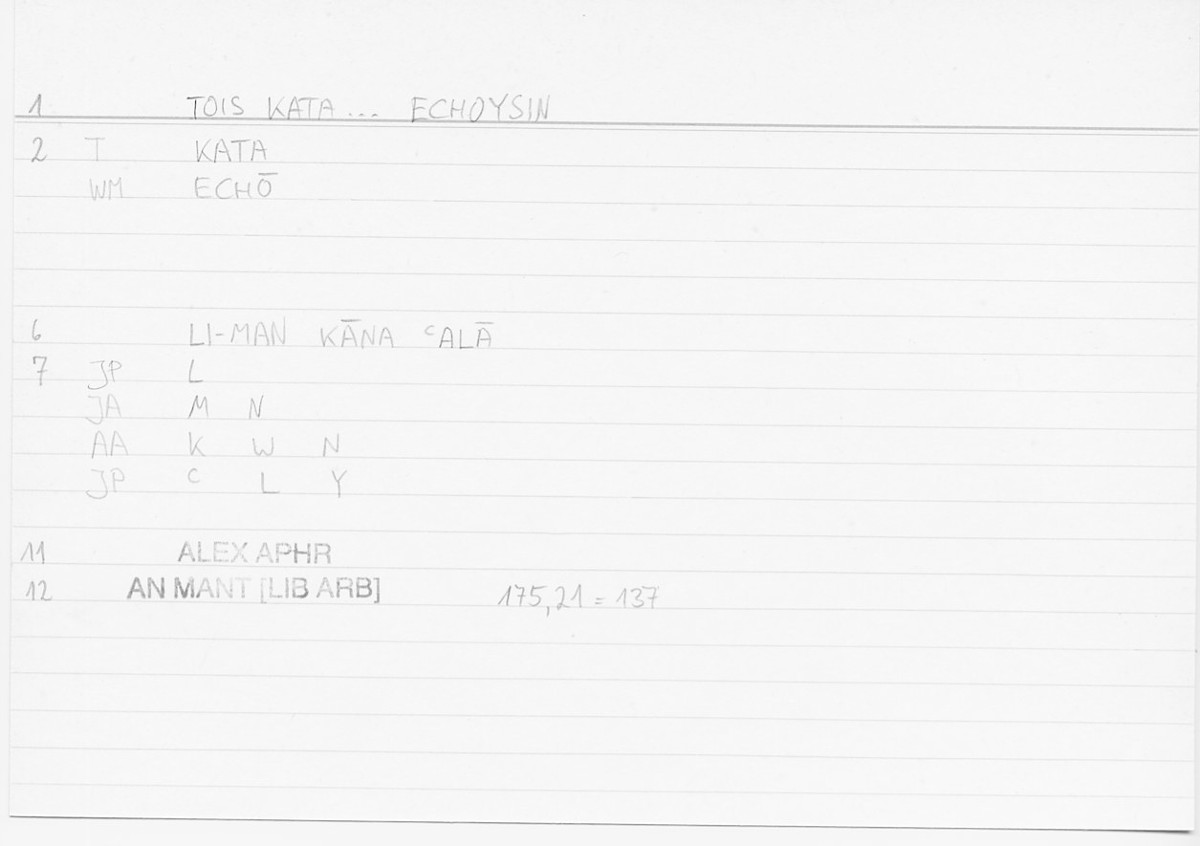 1 TOIS KATA ... ECHOYSIN
2 T KATA
WM ECHŌ
6 LI-MAN KĀNA ᶜALĀ
7 JP L
JA M N
AA K W N
JP ᶜ L Y
11 ALEX APHR
12 AN MANT [LIB ARB] 175,21 = 137